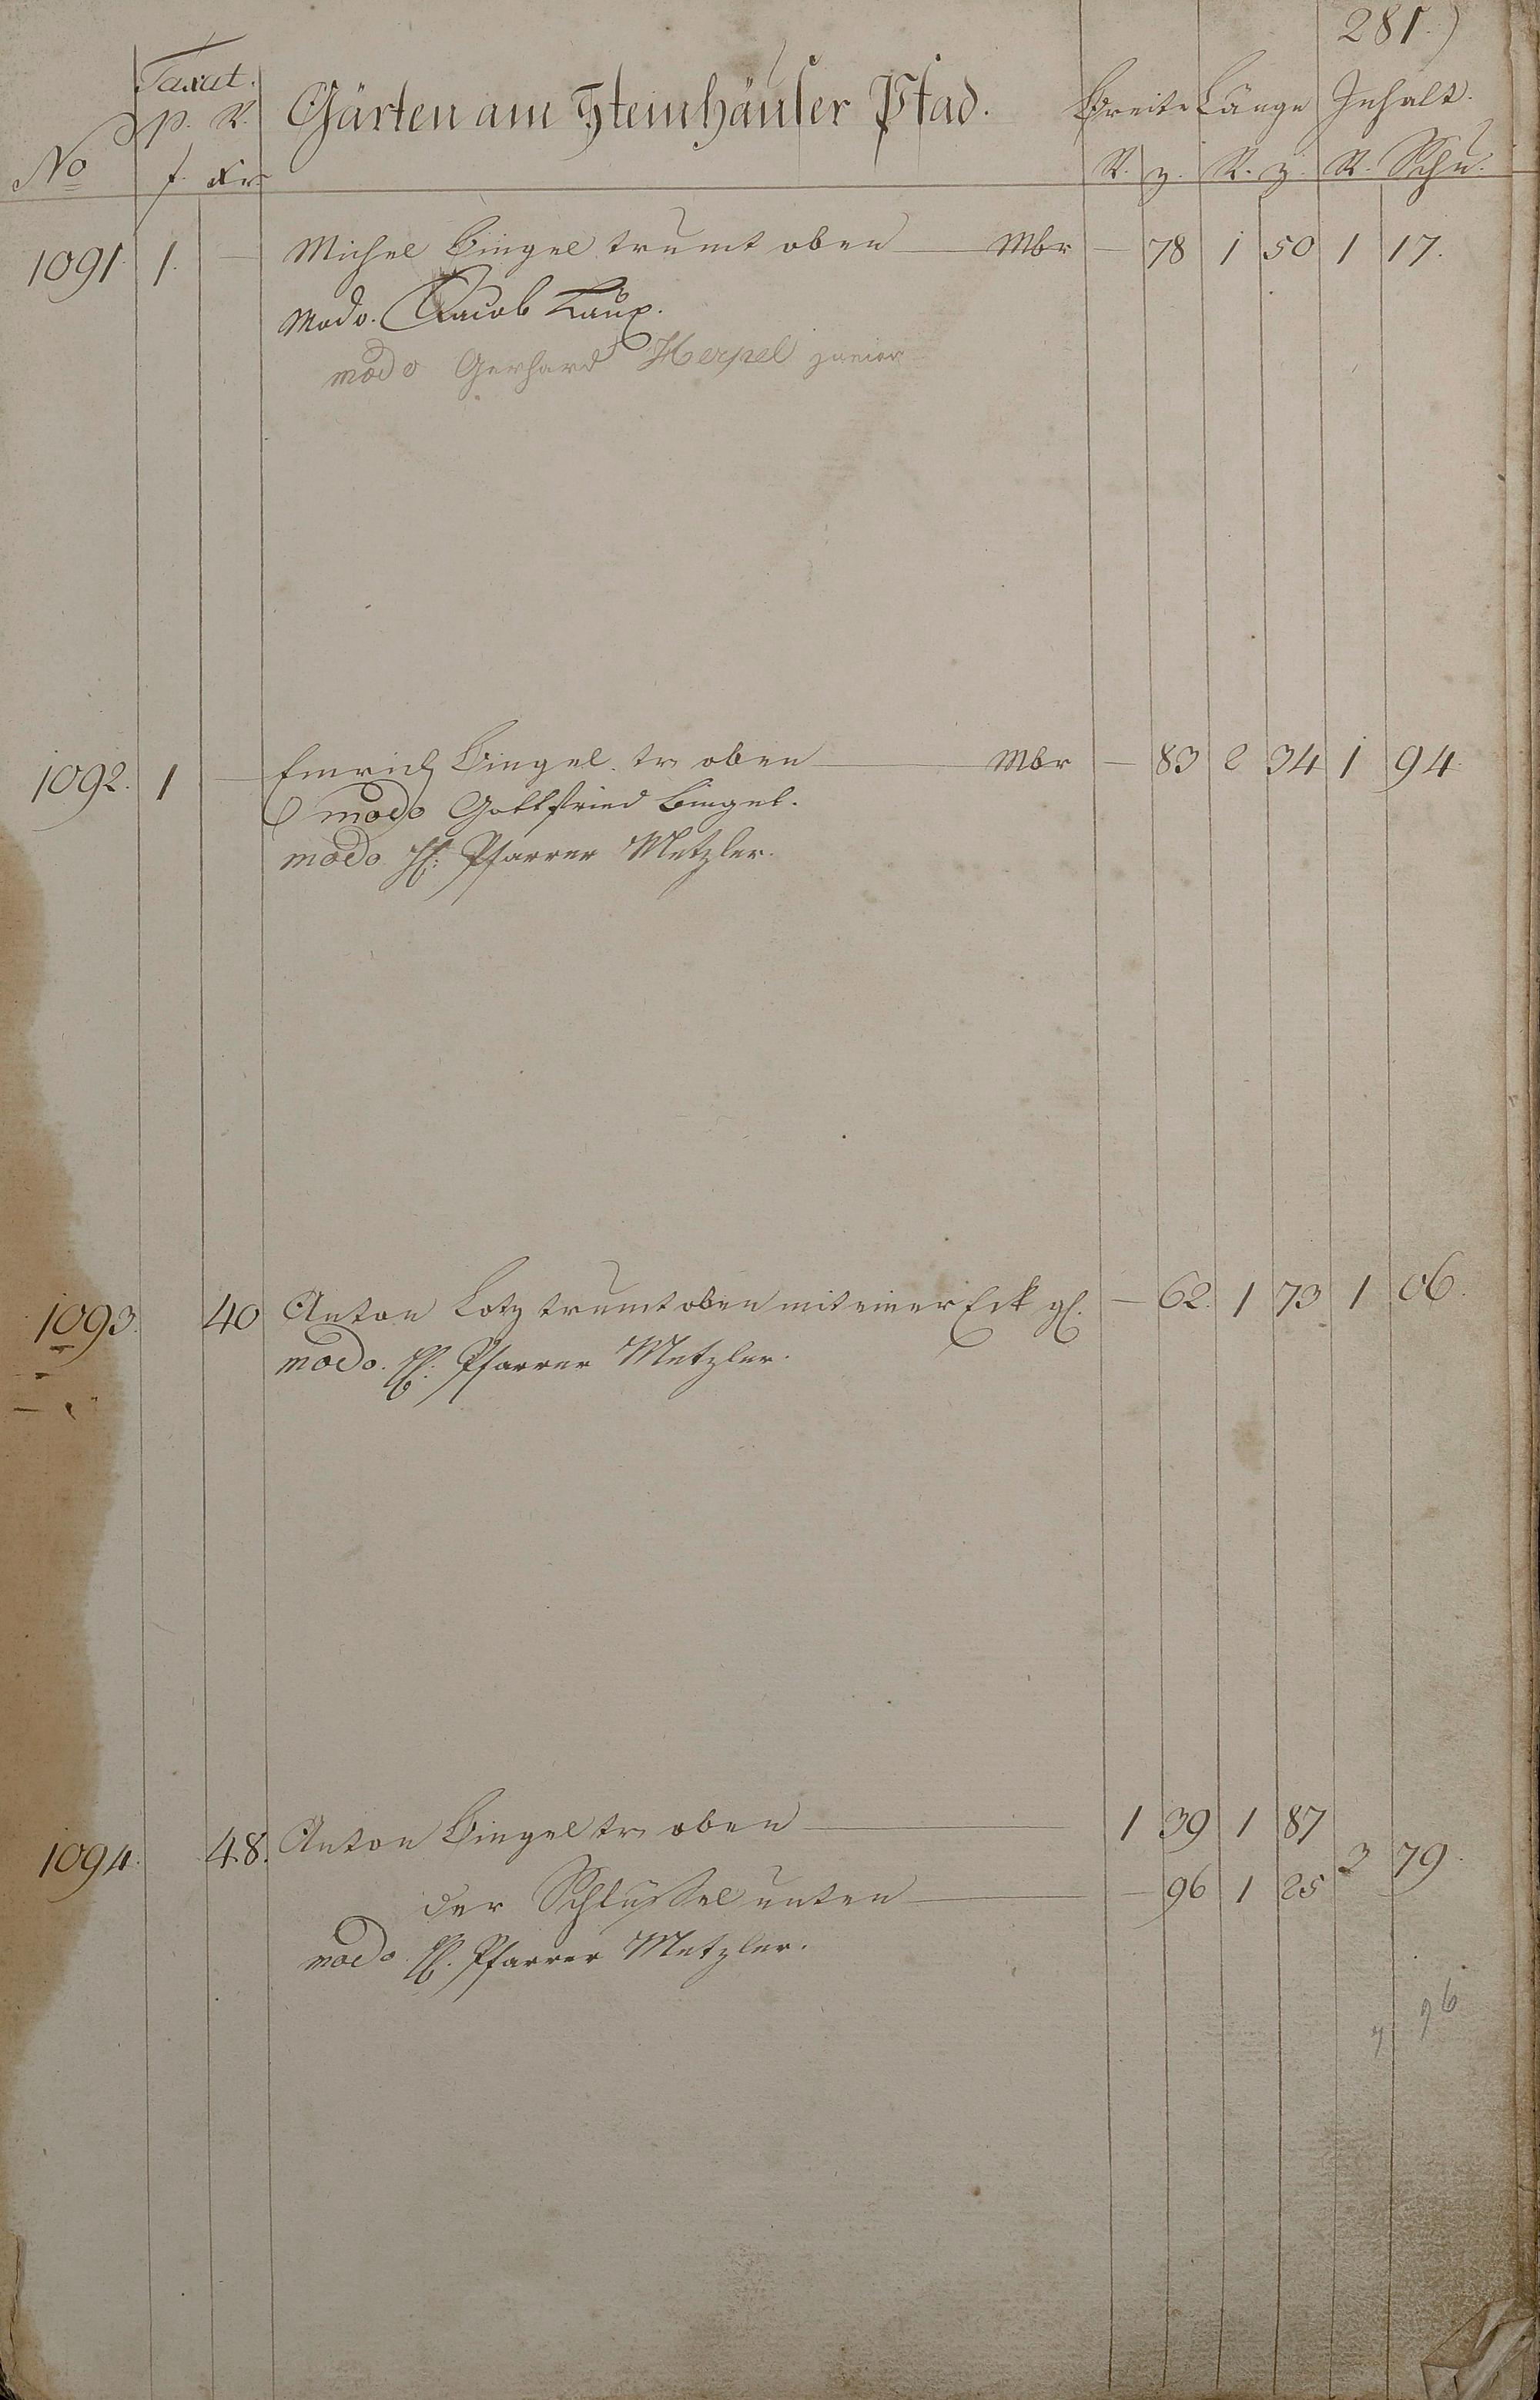 281.)
Taxat.
No p. R. Gärten am Steinhäuser Pfad. Breite Länge Inhalt.
f. Xr. R. z. R. z. R. Schu.
1091. 1. — Michel Bingel trumt oben — Mbr — 78 1 50 1 17.
Modo. Jacob Laux.
modo Gerhard Herpel
1092. 1 — Emrich Bingel. tr. oben — Mbr — 83 2 34 1 94.
modo Gottfried Bingel.
modo H: Pfarrer Metzler.
1093. 40 Anton Lotz trumt oben mit einer Eck gl. — 62. 1 73 1 06.
modo. H: Pfarrer Metzler.
1094. 48. Anton Bingel tr. oben — 1 39 1 87
der Schlüssel unten — — 96 1 25 3 79.
modo. H. Pfarrer Metzler.
7 96